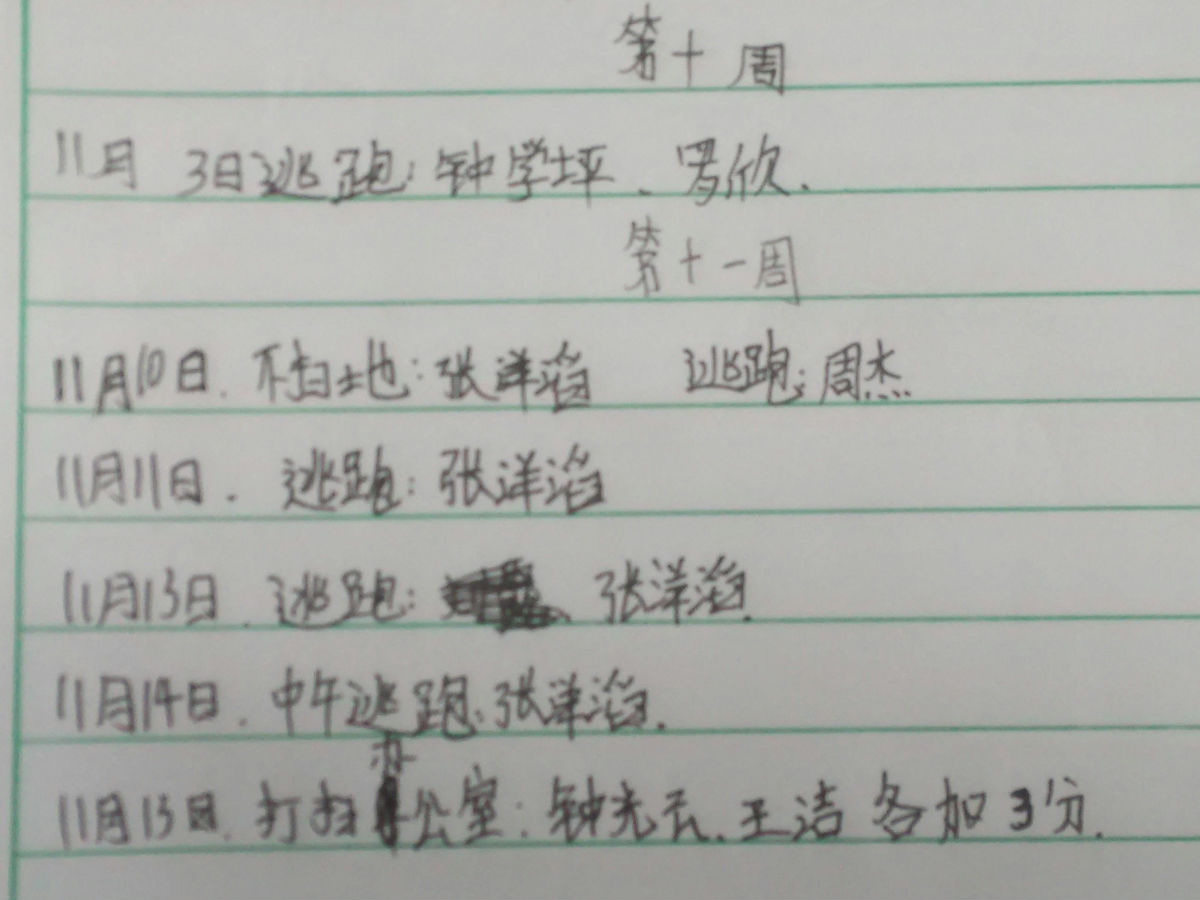 第十周
11月 3日逃跑:钟学坪、罗欣.
第十一周
11月10日.不扫地:张洋滔 逃跑:周杰
11月11日.逃跑:张洋滔
11月13日.逃跑: 张洋滔.
11月14日.中午逃跑:张洋滔.
11月15日.打扫办公室:钟光云.王洁 各加3分.